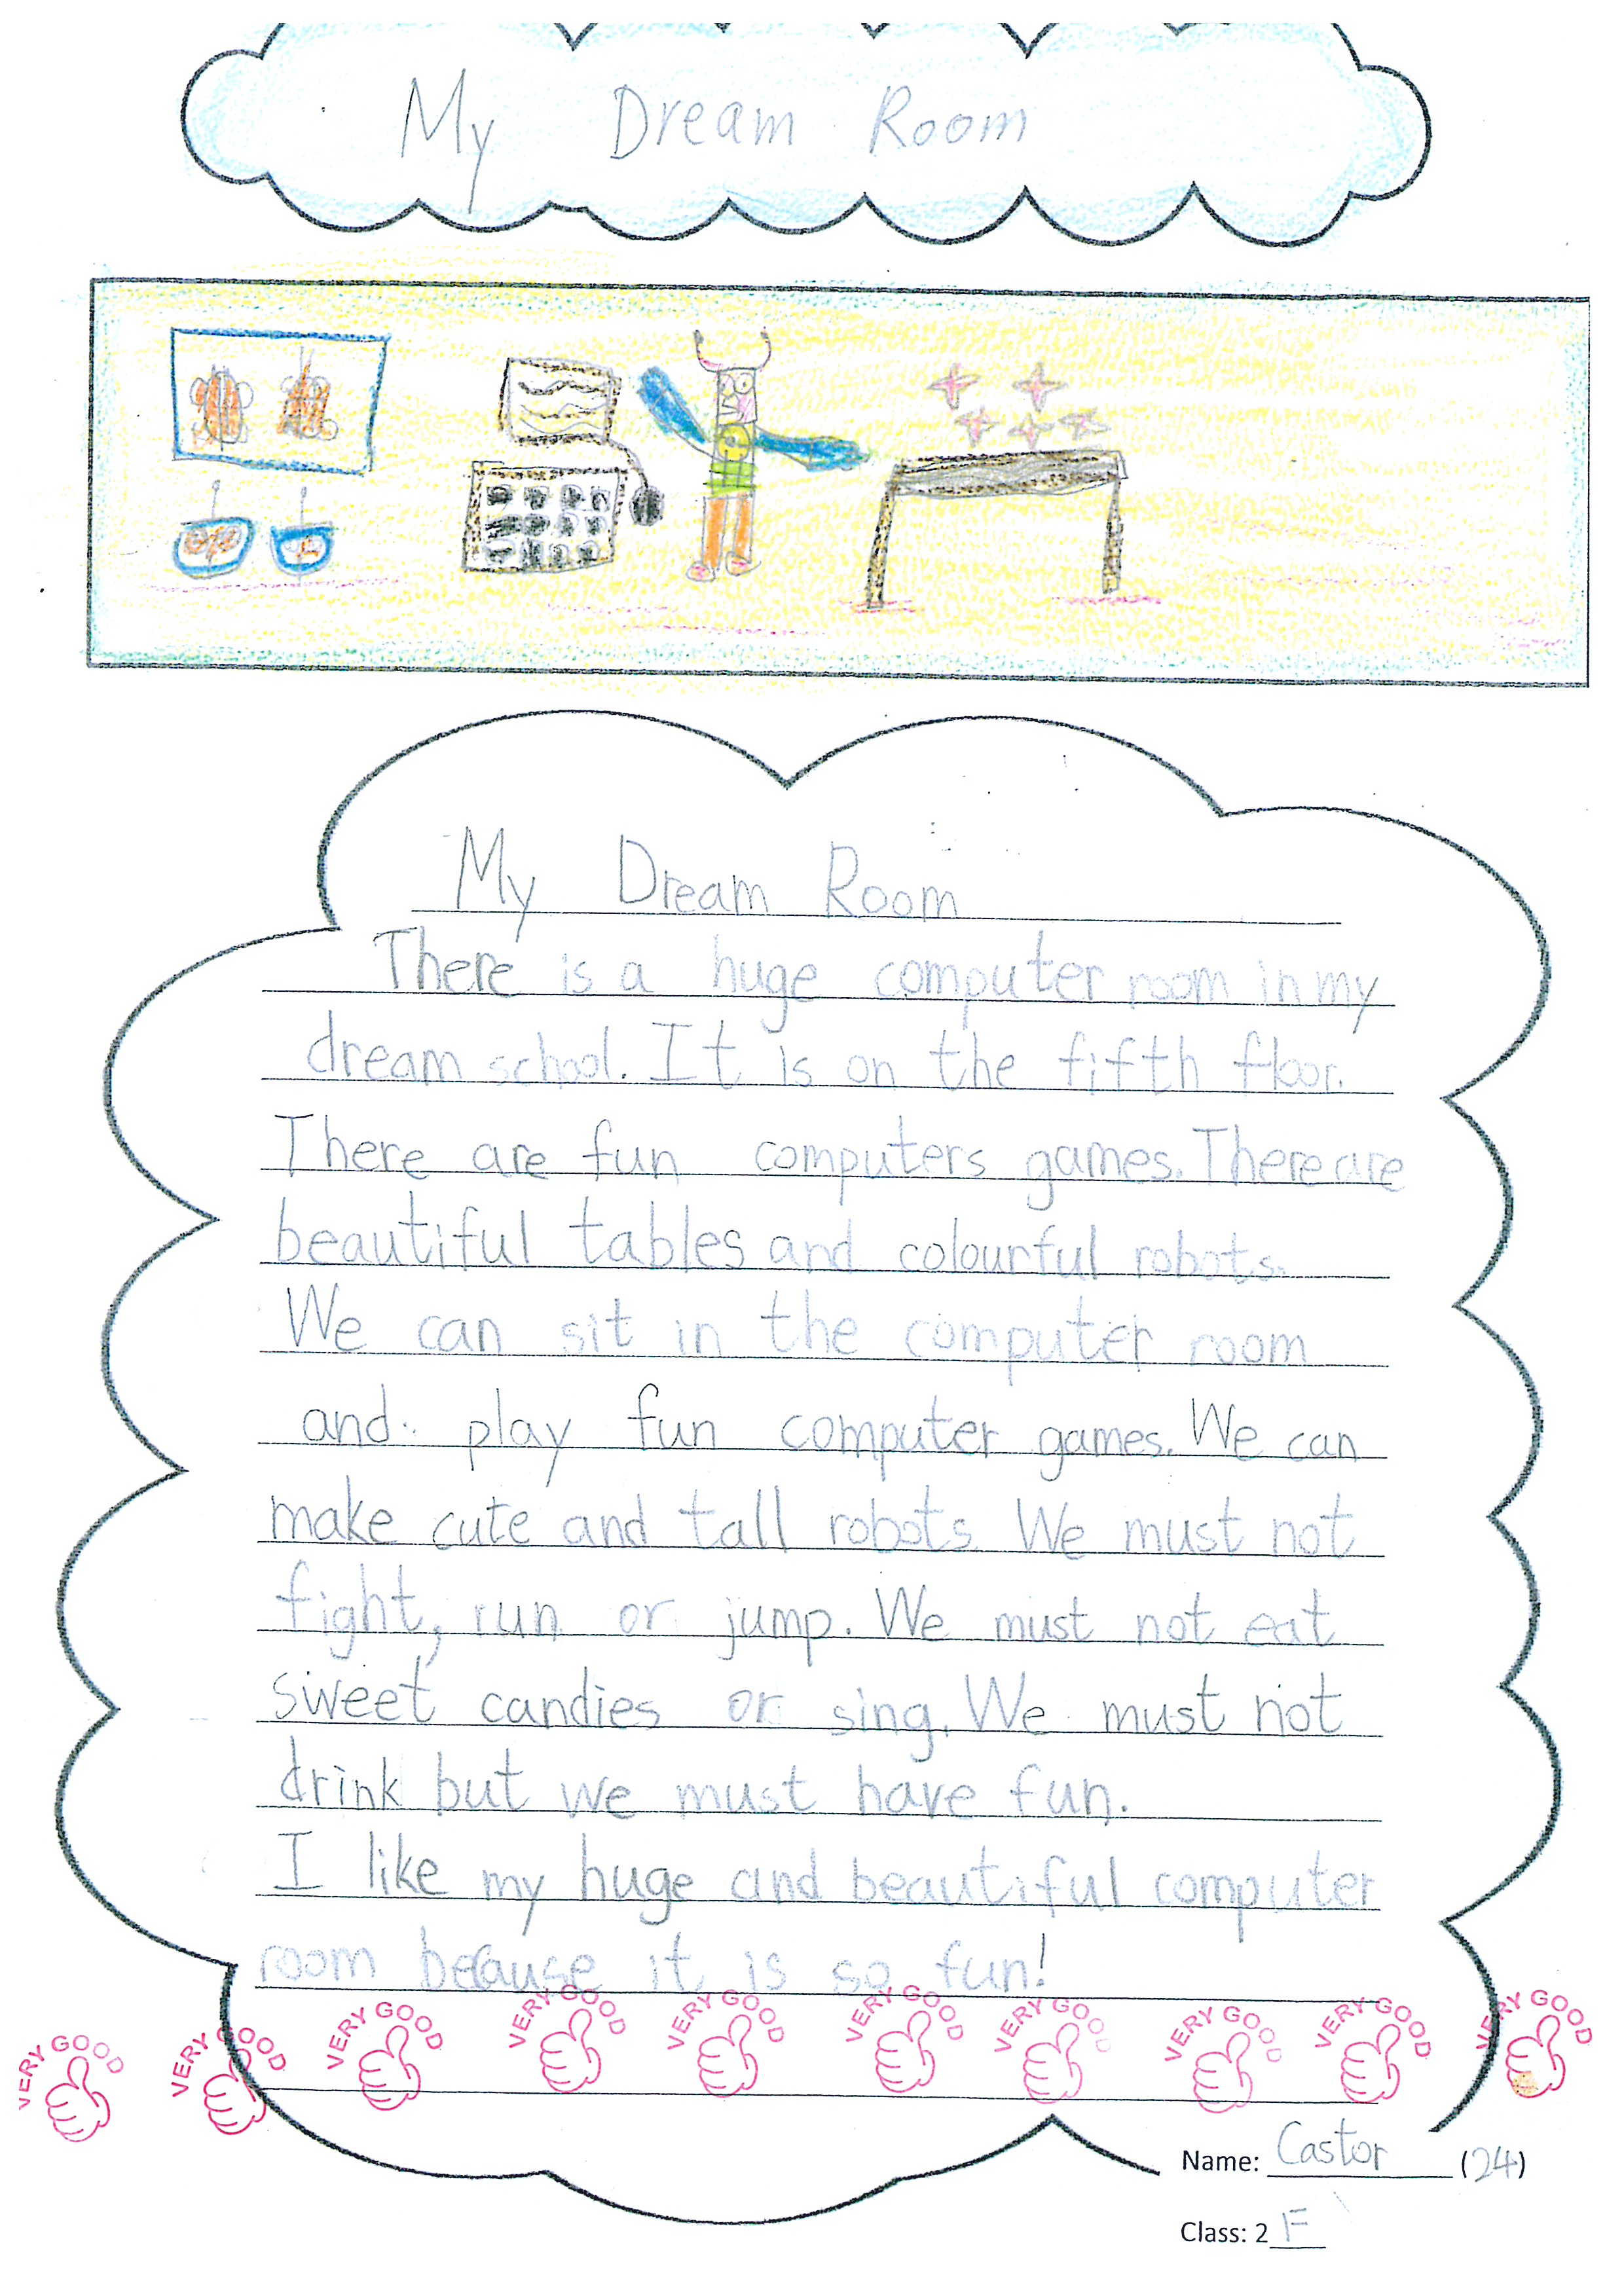 My Dream Room
My Dream Room
There is a huge computer room in my
dream school. It is on the fifth floor.
There are fun computers games. There are
beautiful tables and colourful robots.
We can sit in the computer room
and play fun computer games. We can
make cute and tall robots. We must not
fight, run or jump. We must not eat
sweet candies or sing. We must not
drink but we must have fun.
I like my huge and beautiful computer
room because it is so fun!
VERY GOOD VERY GOOD VERY GOOD VERY GOOD VERY GOOD VERY GOOD VERY GOOD VERY GOOD VERY GOOD VERY GOOD
Name: Castor (24)
Class: 2 F